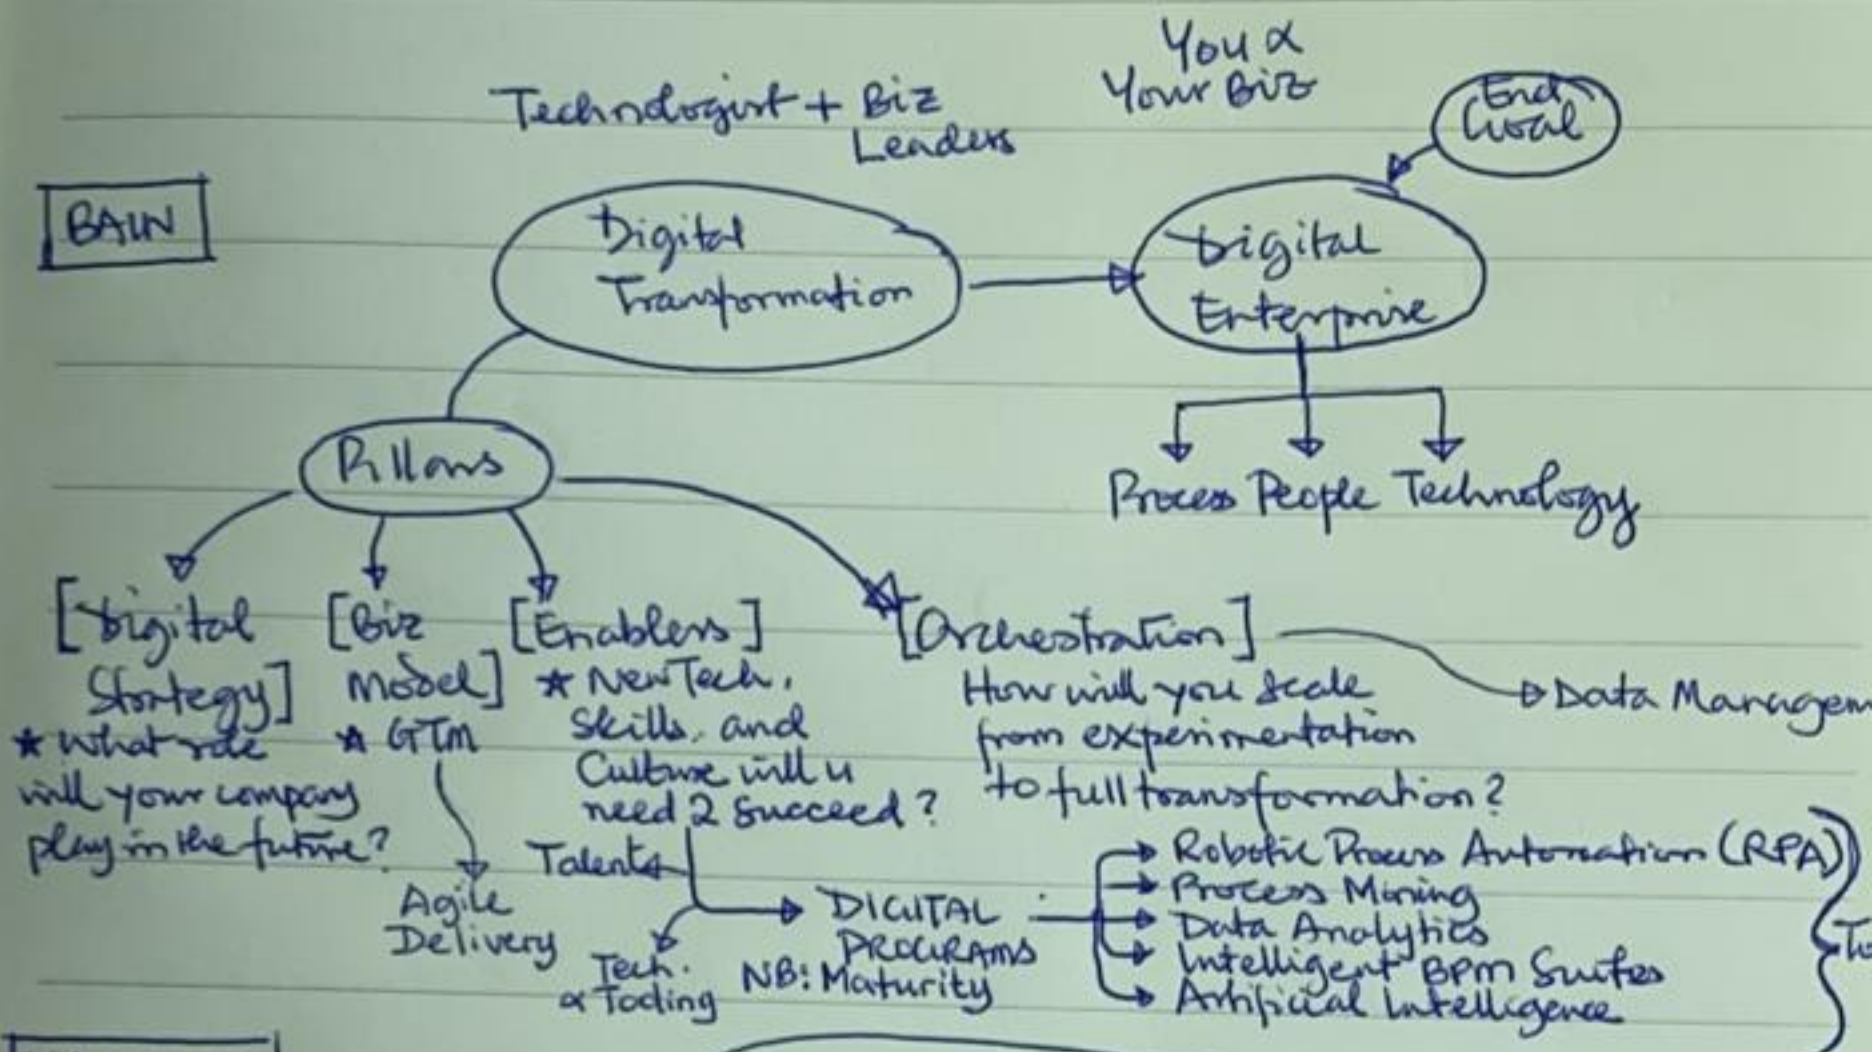 You &
Your Biz
Technologist + Biz
Leaders
End
Goal
BAIN
Digital
Transformation
Digital
Enterprise
Pillars
Process People Technology
[Digital
Strategy]
* What role
will your company
play in the future?
[Biz
Model]
* GTM
Agile
Delivery
[Enablers]
* New Tech,
Skills, and
Culture will u
need 2 succeed?
Talents
Tech.
& Tooling
DIGITAL
PROGRAMS
NB: Maturity
[Orchestration]
How will you scale
from experimentation
to full transformation?
Data Managem
Robotic Process Automation (RPA)
Process Mining
Data Analytics
Intelligent BPM Suites
Artificial Intelligence